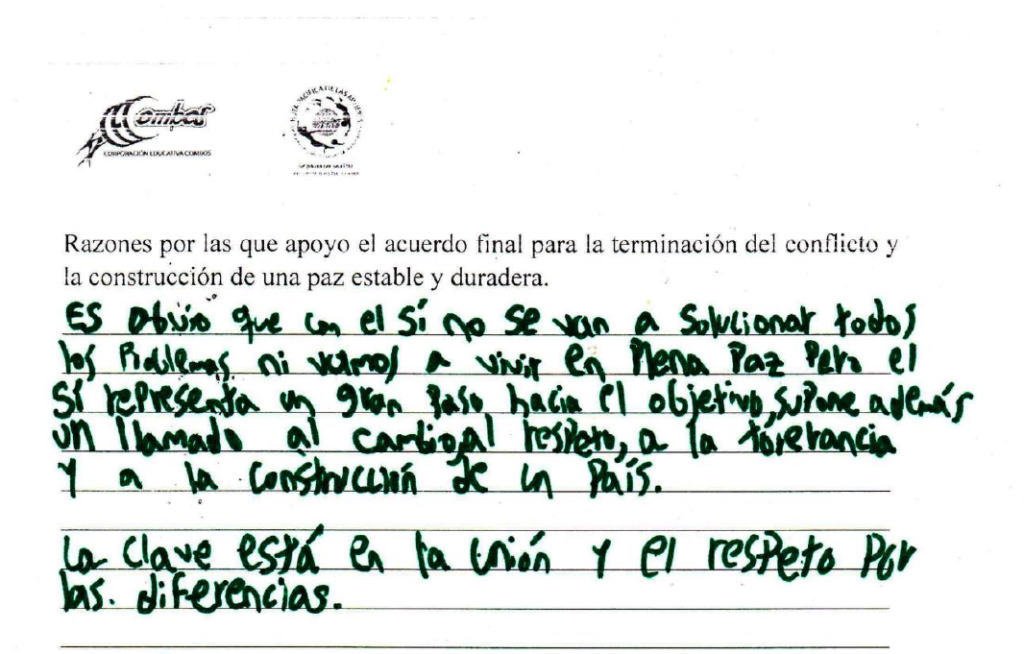 Combos
CORPORACIÓN EDUCATIVA COMBOS
Razones por las que apoyo el acuerdo final para la terminación del conflicto y
la construcción de una paz estable y duradera.
ES obvio que con el sí no se van a solucionar todos
los Problemas ni vamos a vivir en Plena Paz Pero el
sí representa un gran Paso hacia el objetivo, supone además
un llamado al cambio, al respeto, a la tolerancia
Y a la Construcción de un País.
La Clave está en la Unión y el resPeto Por
las. diferencias.